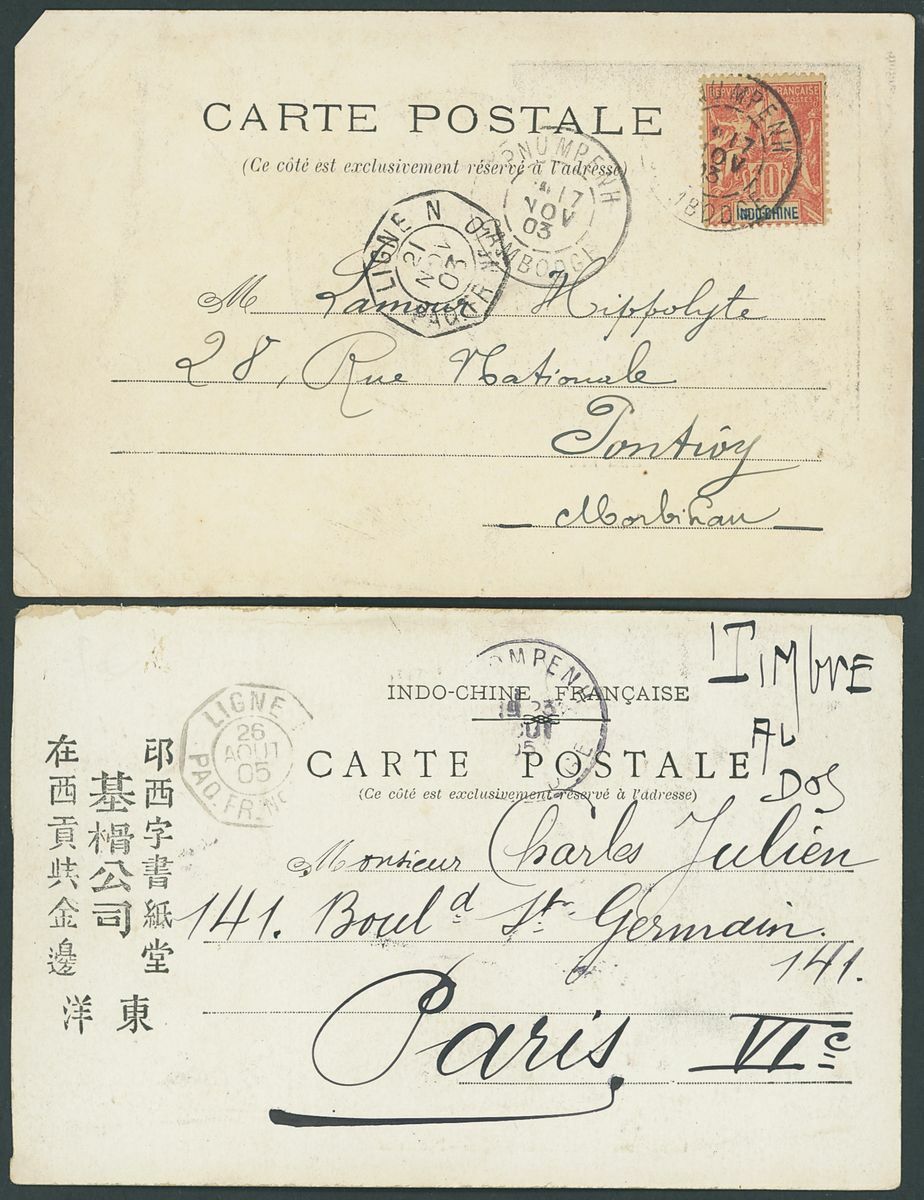 CARTE POSTALE
(Ce côté est exclusivement réservé à l'adresse)
PNUMPENH
17
NOV
03
CAMBODGE
RÉPUBLIQUE FRANÇAISE
POSTES
10
INDO-CHINE
NUMPENH
17
NOV
03
LIGNE N
21
NOV
03
PAQ. FR.
M Lamour Hippolyte
28, Rue Nationale
Pontivy
Morbihan
LIGNE
26
AOUT
05
PAQ. FR. Nº
OMPENH
05
INDO-CHINE FRANÇAISE
Timbre
AU
DOS
CARTE POSTALE
(Ce côté est exclusivement réservé à l'adresse)
印西字書紙堂
基榾公司
在西貢共金邊
東洋
Monsieur Charles Julien
141. Bould St Germain.
141.
Paris VIe